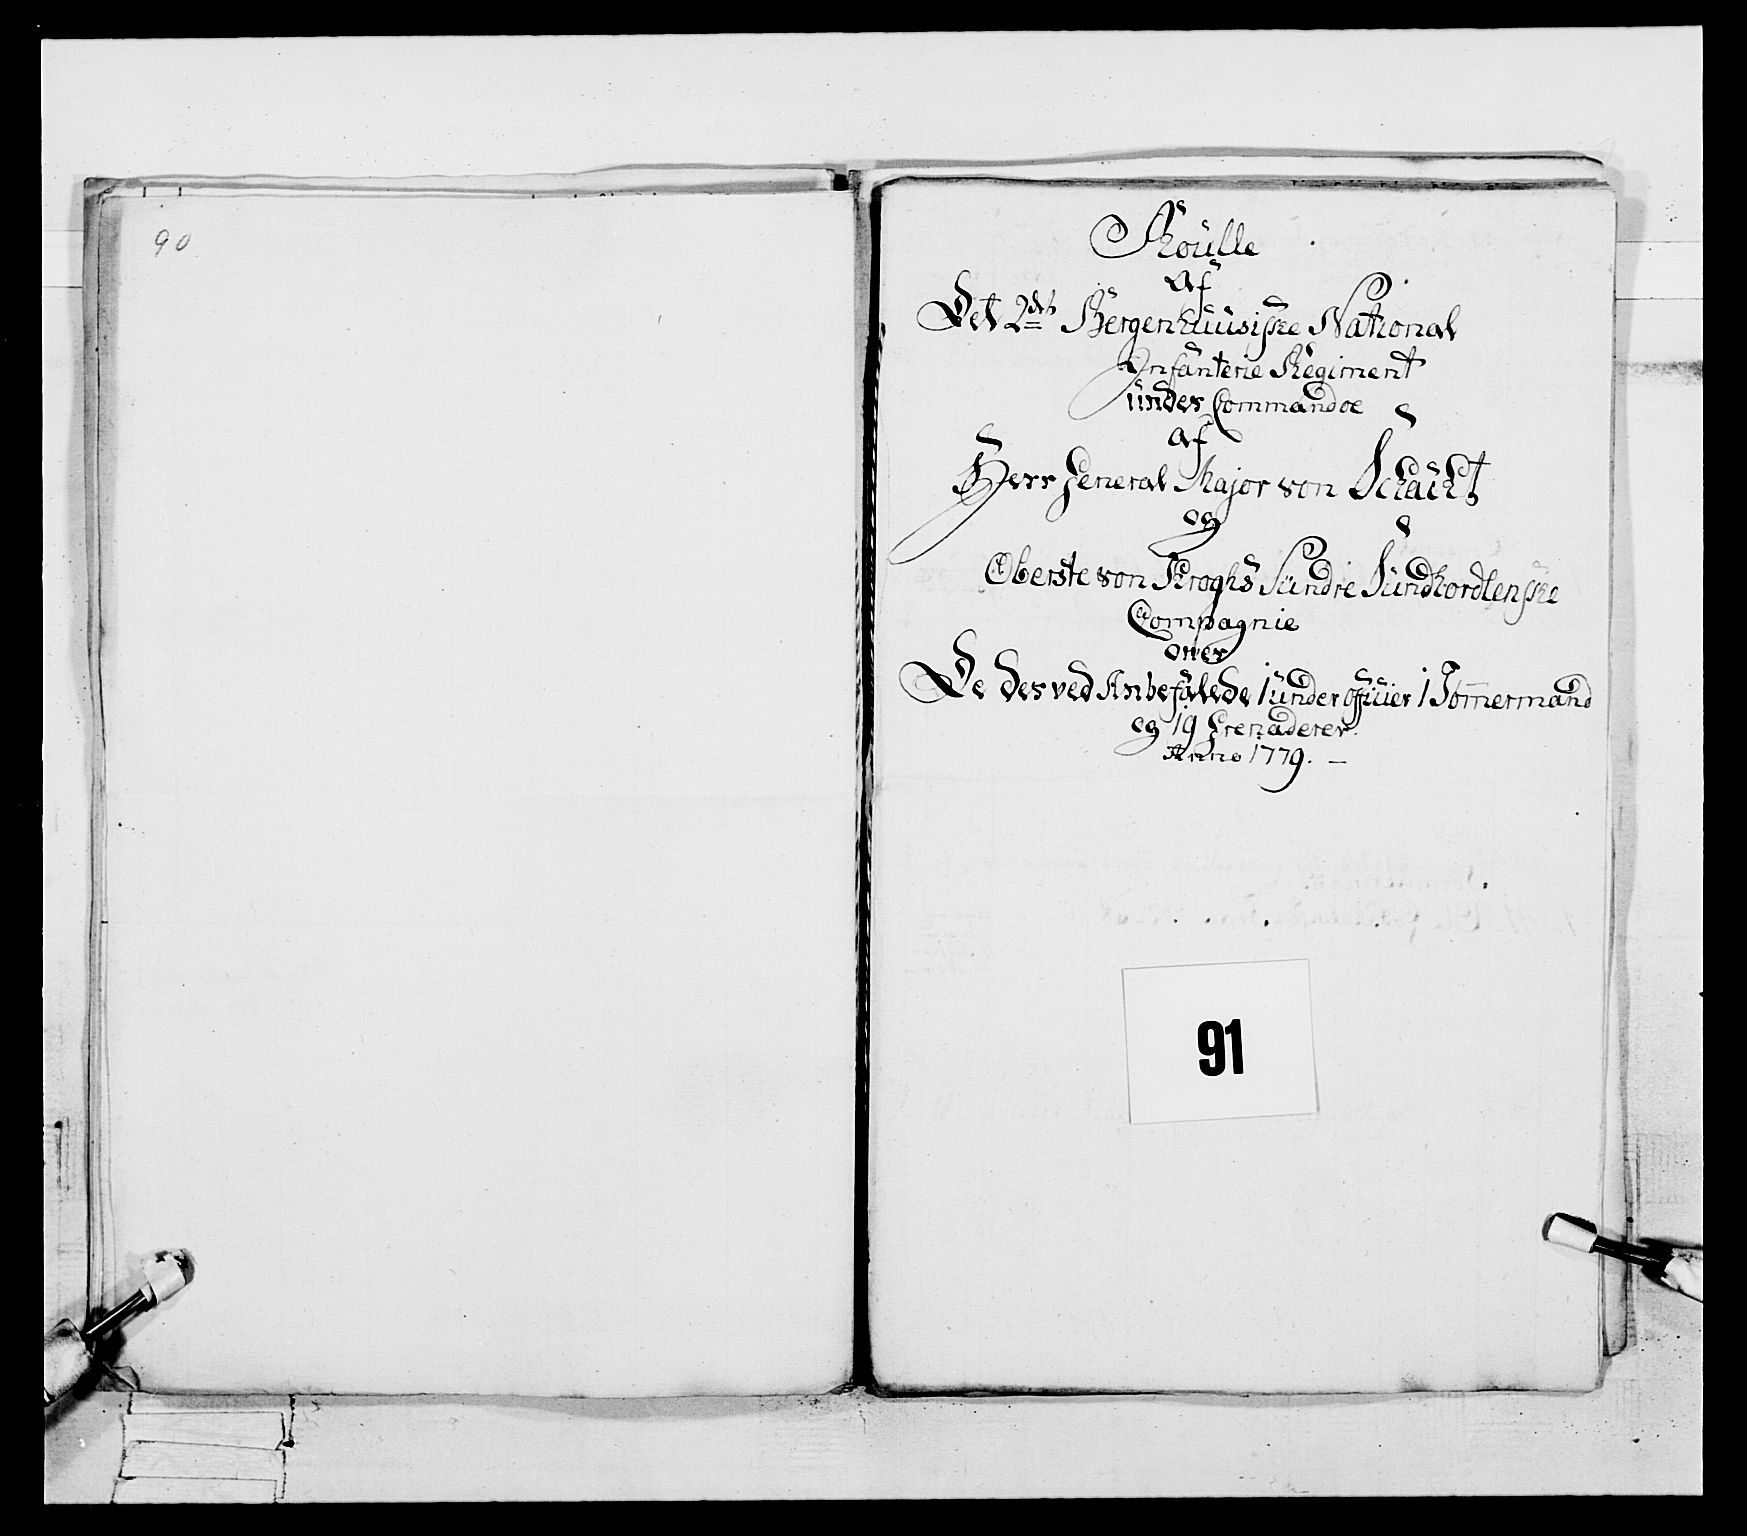 90
Roulle
Af
Det 2det Bergenhuusiske National
Infanterie Regiment
under Commandoe
af
Herr General Major von Schacht
og
Oberste von Kroghs Sundre Sundhordlenske
Compagnie
over
De des ved Anbefalede 1 under officier 1 Tømmermand
og 19 Grenaderer
Anno 1779. —
91